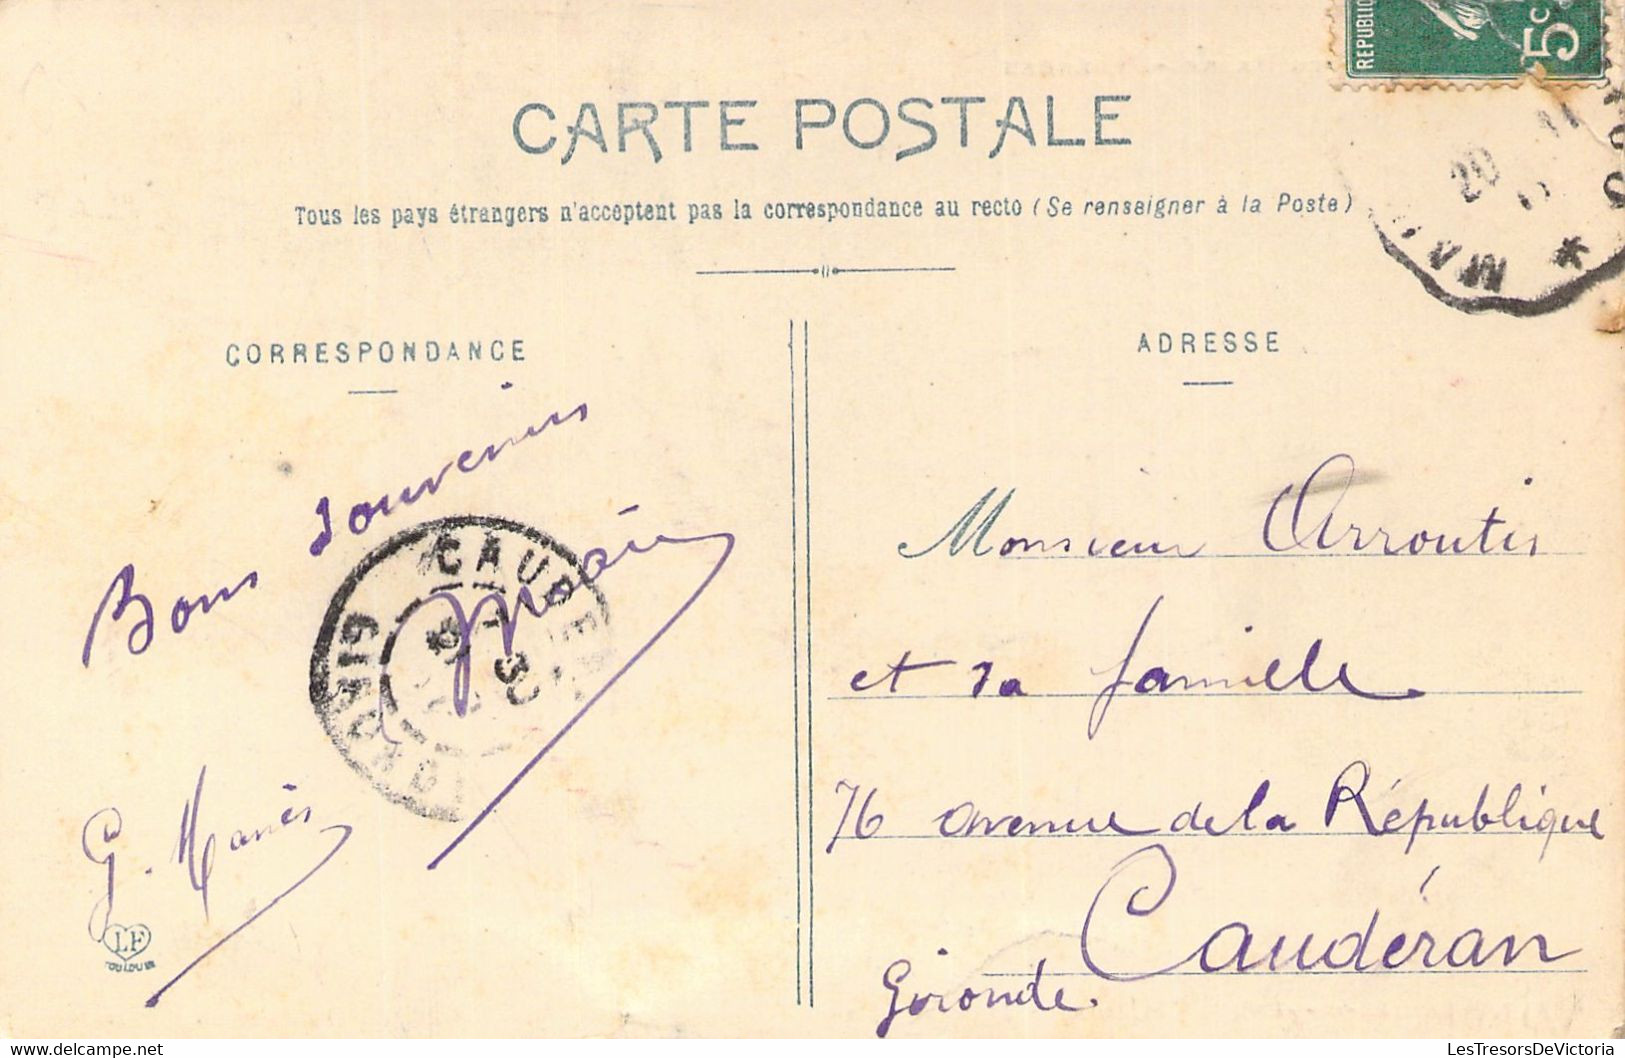 REPUBLIQ
5c
20
MA
*
CARTE POSTALE
Tous les pays étrangers n'acceptent pas la correspondance au recto (Se renseigner à la Poste)
CORRESPONDANCE
Bons souvenirs
CAUDE
GIRONDE
G. Manès
LF
TOULOUSE
ADRESSE
Monsieur Arroutis
et sa famille
76 avenue de la République
Caudéran
Gironde.
LesTresorsDeVictoria